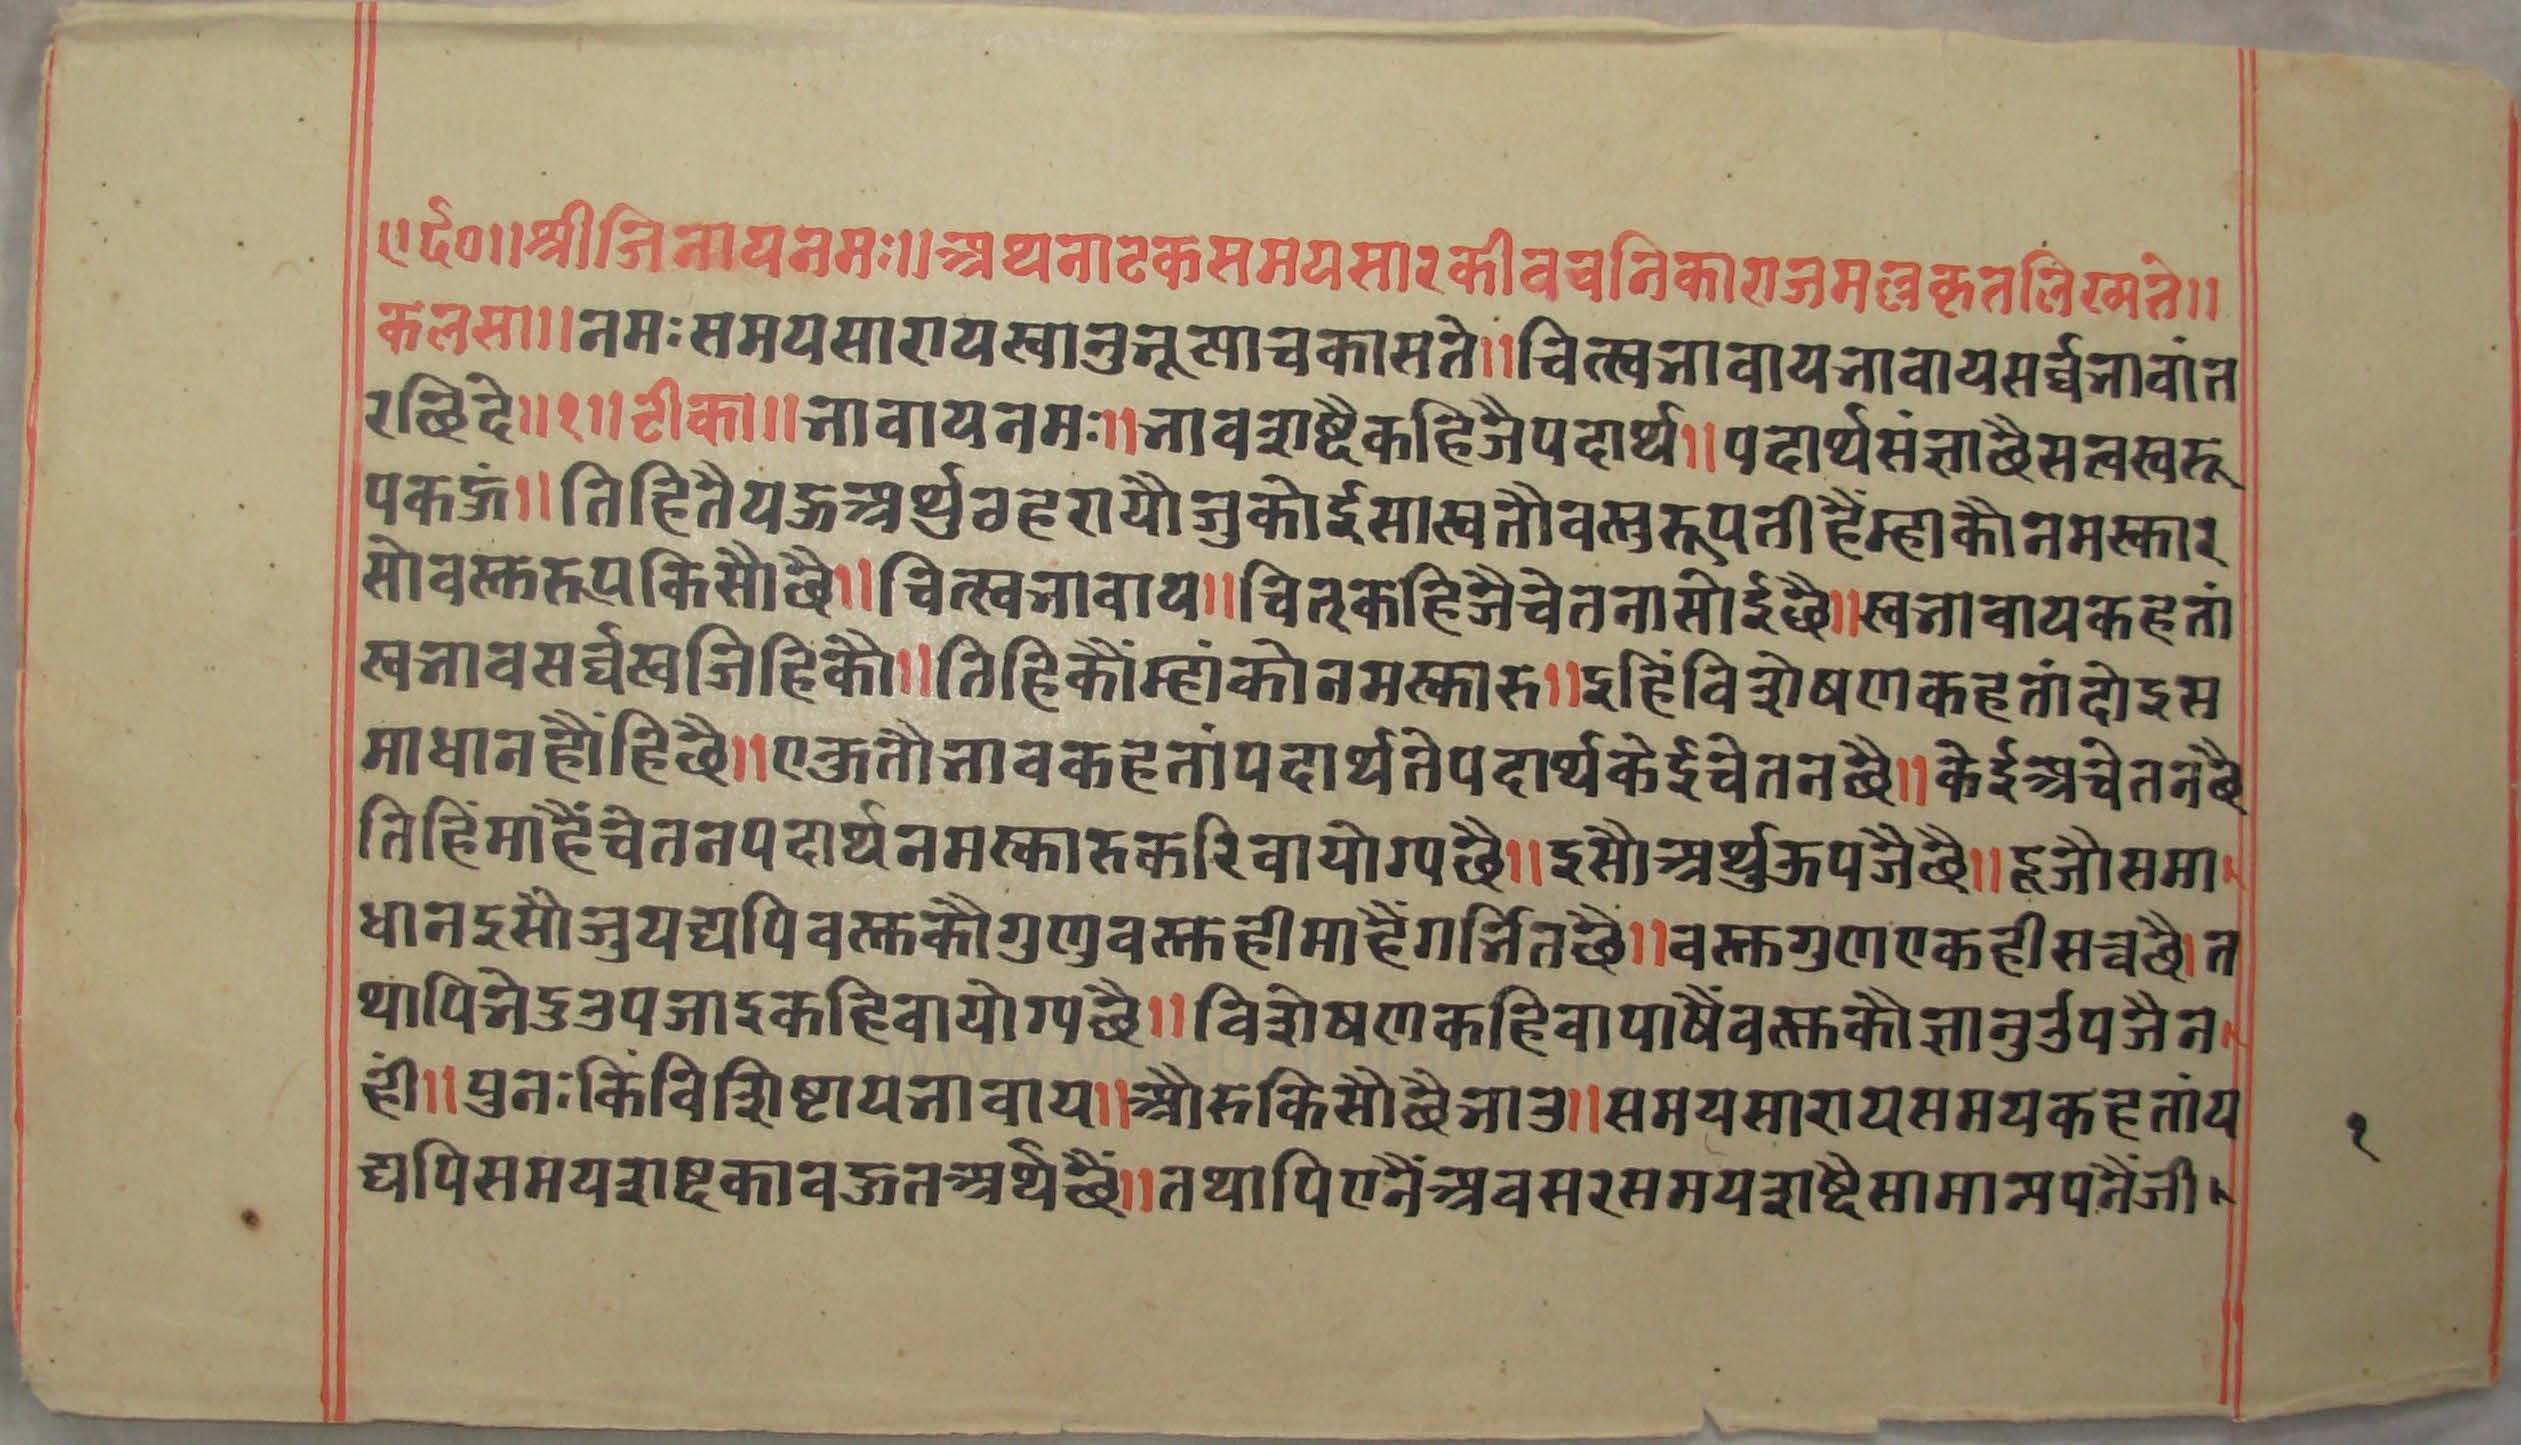 ॥र्द०॥श्रीजिनायनमः॥अथनाटकसमयसारकीवचनिकाराजमल्लकृतलिख्यते॥
कलसा॥नमःसमयसारायस्वानुभूत्याचकासते॥चित्स्वभावायभावायसर्व्वभावांत
रछिदे॥१॥टीका॥भावायनमः॥भावशब्दैकहिजैपदार्थ॥पदार्थसंज्ञाछैसत्वस्वरू
पकहुं॥तिहितैयहुअर्थुठहरायौजुकोईसास्वतौवस्तुरूपतीहैंम्हाकौनमस्कार
सोवस्तुरूपकिसौछै॥चित्स्वभावाय॥चित्कहिजैचेतनासोईछै॥स्वभावायकहतां
स्वभावसर्व्वस्वजिहिकौ॥तिहिकौंम्हांकोनमस्कारु॥इहिंविशेषणकहतांदोइस
माधानहौंहिछै॥एकुतौभावकहतांपदार्थतेपदार्थकेईचेतनछै॥केईअचेतनछै
तिहिंमांहैंचेतनपदार्थनमस्कारुकरिवायोग्यछै॥इसौअर्थुऊपजैछै॥दूजौसमा
धानइसौजुयद्यपिवस्तुकौगुणुवस्तुहीमाहैंगर्भितछै॥वस्तुगुणएकहीसत्वछै।त
थापिभेदुउपजाइकहिवायोग्यछै॥विशेषणकहिवापाषैंवस्तुकौज्ञानुउपजैन
हीं॥पुनःकिंविशिष्टायभावाय॥औरुकिसौछैभाउ॥समयसारायसमयकहतांय
द्यपिसमयशब्दकाबहुतअर्थछैं॥तथापिएनैंअवसरसमयशब्दैसामान्यपनैंजी
१